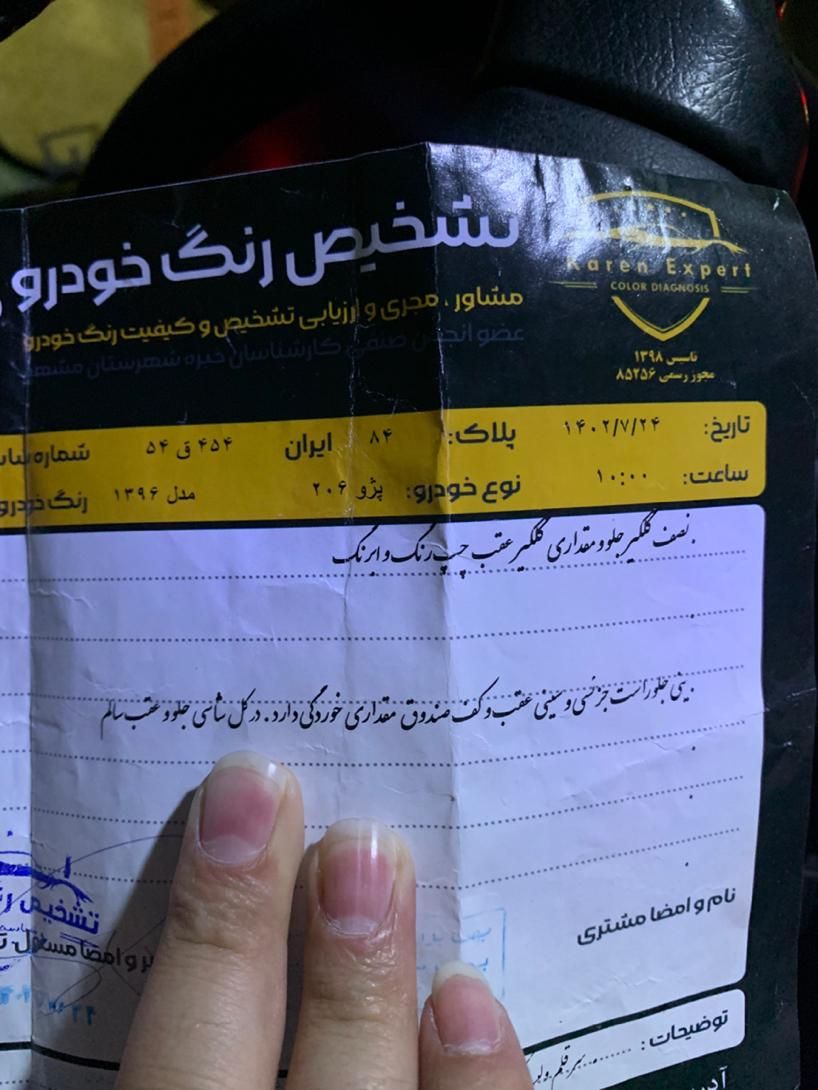 تشخیص رنگ خودرو
Karen Expert
COLOR DIAGNOSIS
مشاور ، مجری و ارزیابی تشخیص و کیفیت رنگ خودرو
عضو انجمن صنفی کارشناسان خبره شهرستان مشهد
تاسیس ۱۳۹۸
مجوز رسمی ۸۵۲۵۶
تاریخ: ۱۴۰۲/۷/۲۴ پلاک: ۸۴ ایران ۴۵۴ ق ۵۴ شماره
ساعت: ۱۰:۰۰ نوع خودرو: پژو ۲۰۶ مدل ۱۳۹۶ رنگ خودرو
نصف گلگیر جلو و مقداری گلگیر عقب چپ رنگ و ابرنگ
سینی جلو راست جزئی و سینی عقب و کف صندوق مقداری خوردگی دارد . در کل شاسی جلو و عقب سالم
نام و امضا مشتری
تشخیص
و امضا مسئول
توضیحات :